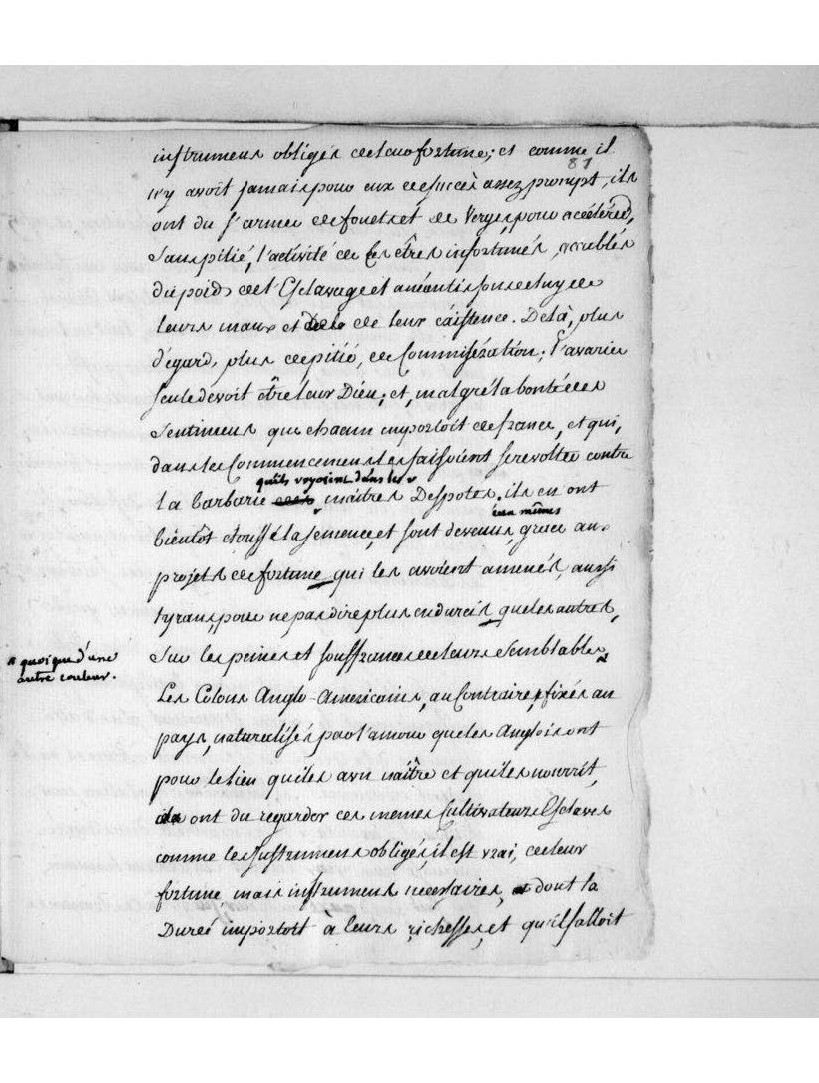 instrumens obligés de leur fortune; et comme il
81
n'y avoit jamais pour eux de succès assez prompt, ils
ont du s'armer de fouets et de verges, pour accélérer,
sans pitié, l'activité de ces êtres infortunés, accablés
du poids de l'Esclavage et anéantis sous celuy de
leurs maux et de leur existence. Delà, plus
d'égard, plus de pitié, de Commisération; l'avarice
seule devoit être leur Dieu; et, malgré la bonté des
sentimens que chacun importoit de france, et qui,
dans les Commencemens les faisoient se revolter contre
qu'ils voyoient dans les
la barbarie maitres Despotes, ils en ont
eux mêmes
bientôt étouffé la semence, et sont devenus, grace aux
projets de fortune qui les avoient amenés, aussi
tyrans, pour ne pas dire plus endurcis, que les autres,
sur les peines et souffrances de leurs semblables
quoique d'une
autre couleur.
Les Colons Anglo-Americains, au Contraire, fixés au
pays, naturalisés par l'amour que les Anglois ont
pour le lieu qui les a vu naître et qui les nourrit,
ont du regarder ces memes Cultivateurs Esclaves
comme les Instrumens obligés, il est vrai, de leur
fortune, mais instrumens necessaires, dont la
Dureé importoit à leurs richesses, et qu'il falloit